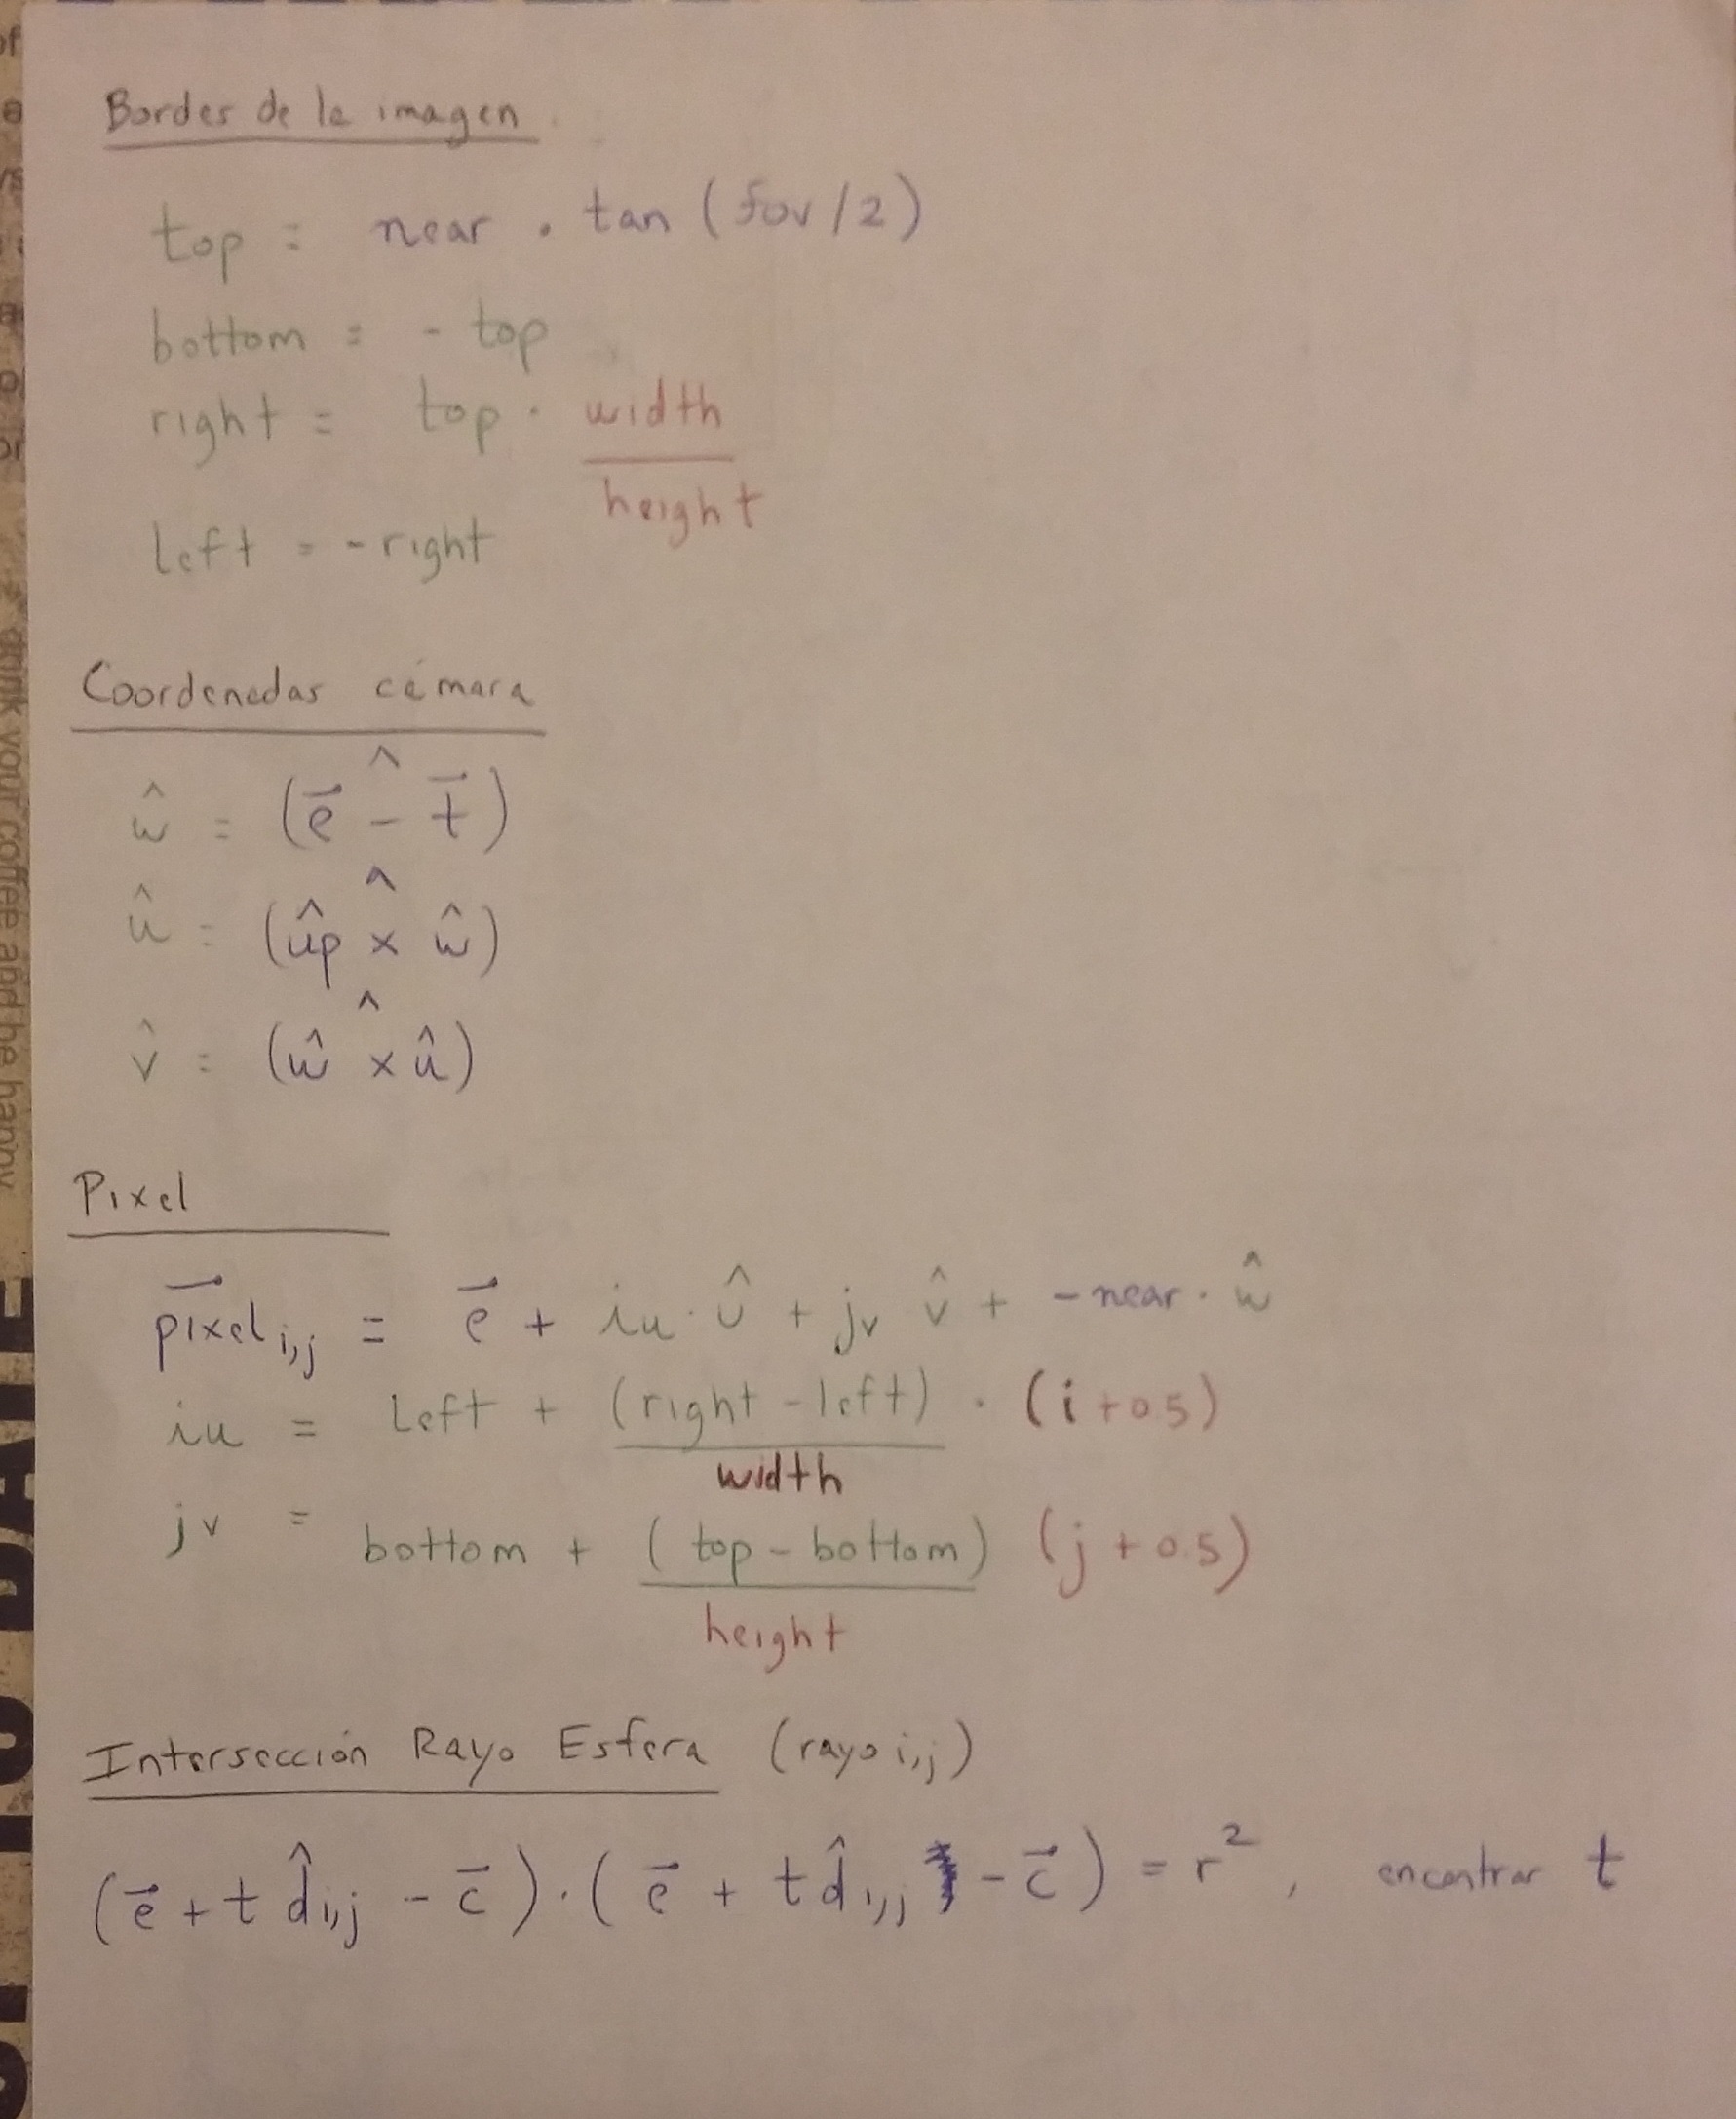 Bordes de la imagen
top = near . tan (fov/2)
bottom = - top
right = top . width
height
left = - right
Coordenadas cámara
ŵ = (e⃗ - t⃗)^
û = (ûp × ŵ)^
v̂ = (ŵ × û)^
Pixel
pixel⃗ i,j = e⃗ + iu · û + jv v̂ + -near · ŵ
iu = left + (right - left) · (i + 0.5)
width
jv = bottom + (top - bottom) (j + 0.5)
height
Intersección Rayo Esfera (rayo i,j)
(e⃗ + t d̂i,j - c⃗) · (e⃗ + t d̂i,j - c⃗) = r², encontrar t
drink your coffee and be happy